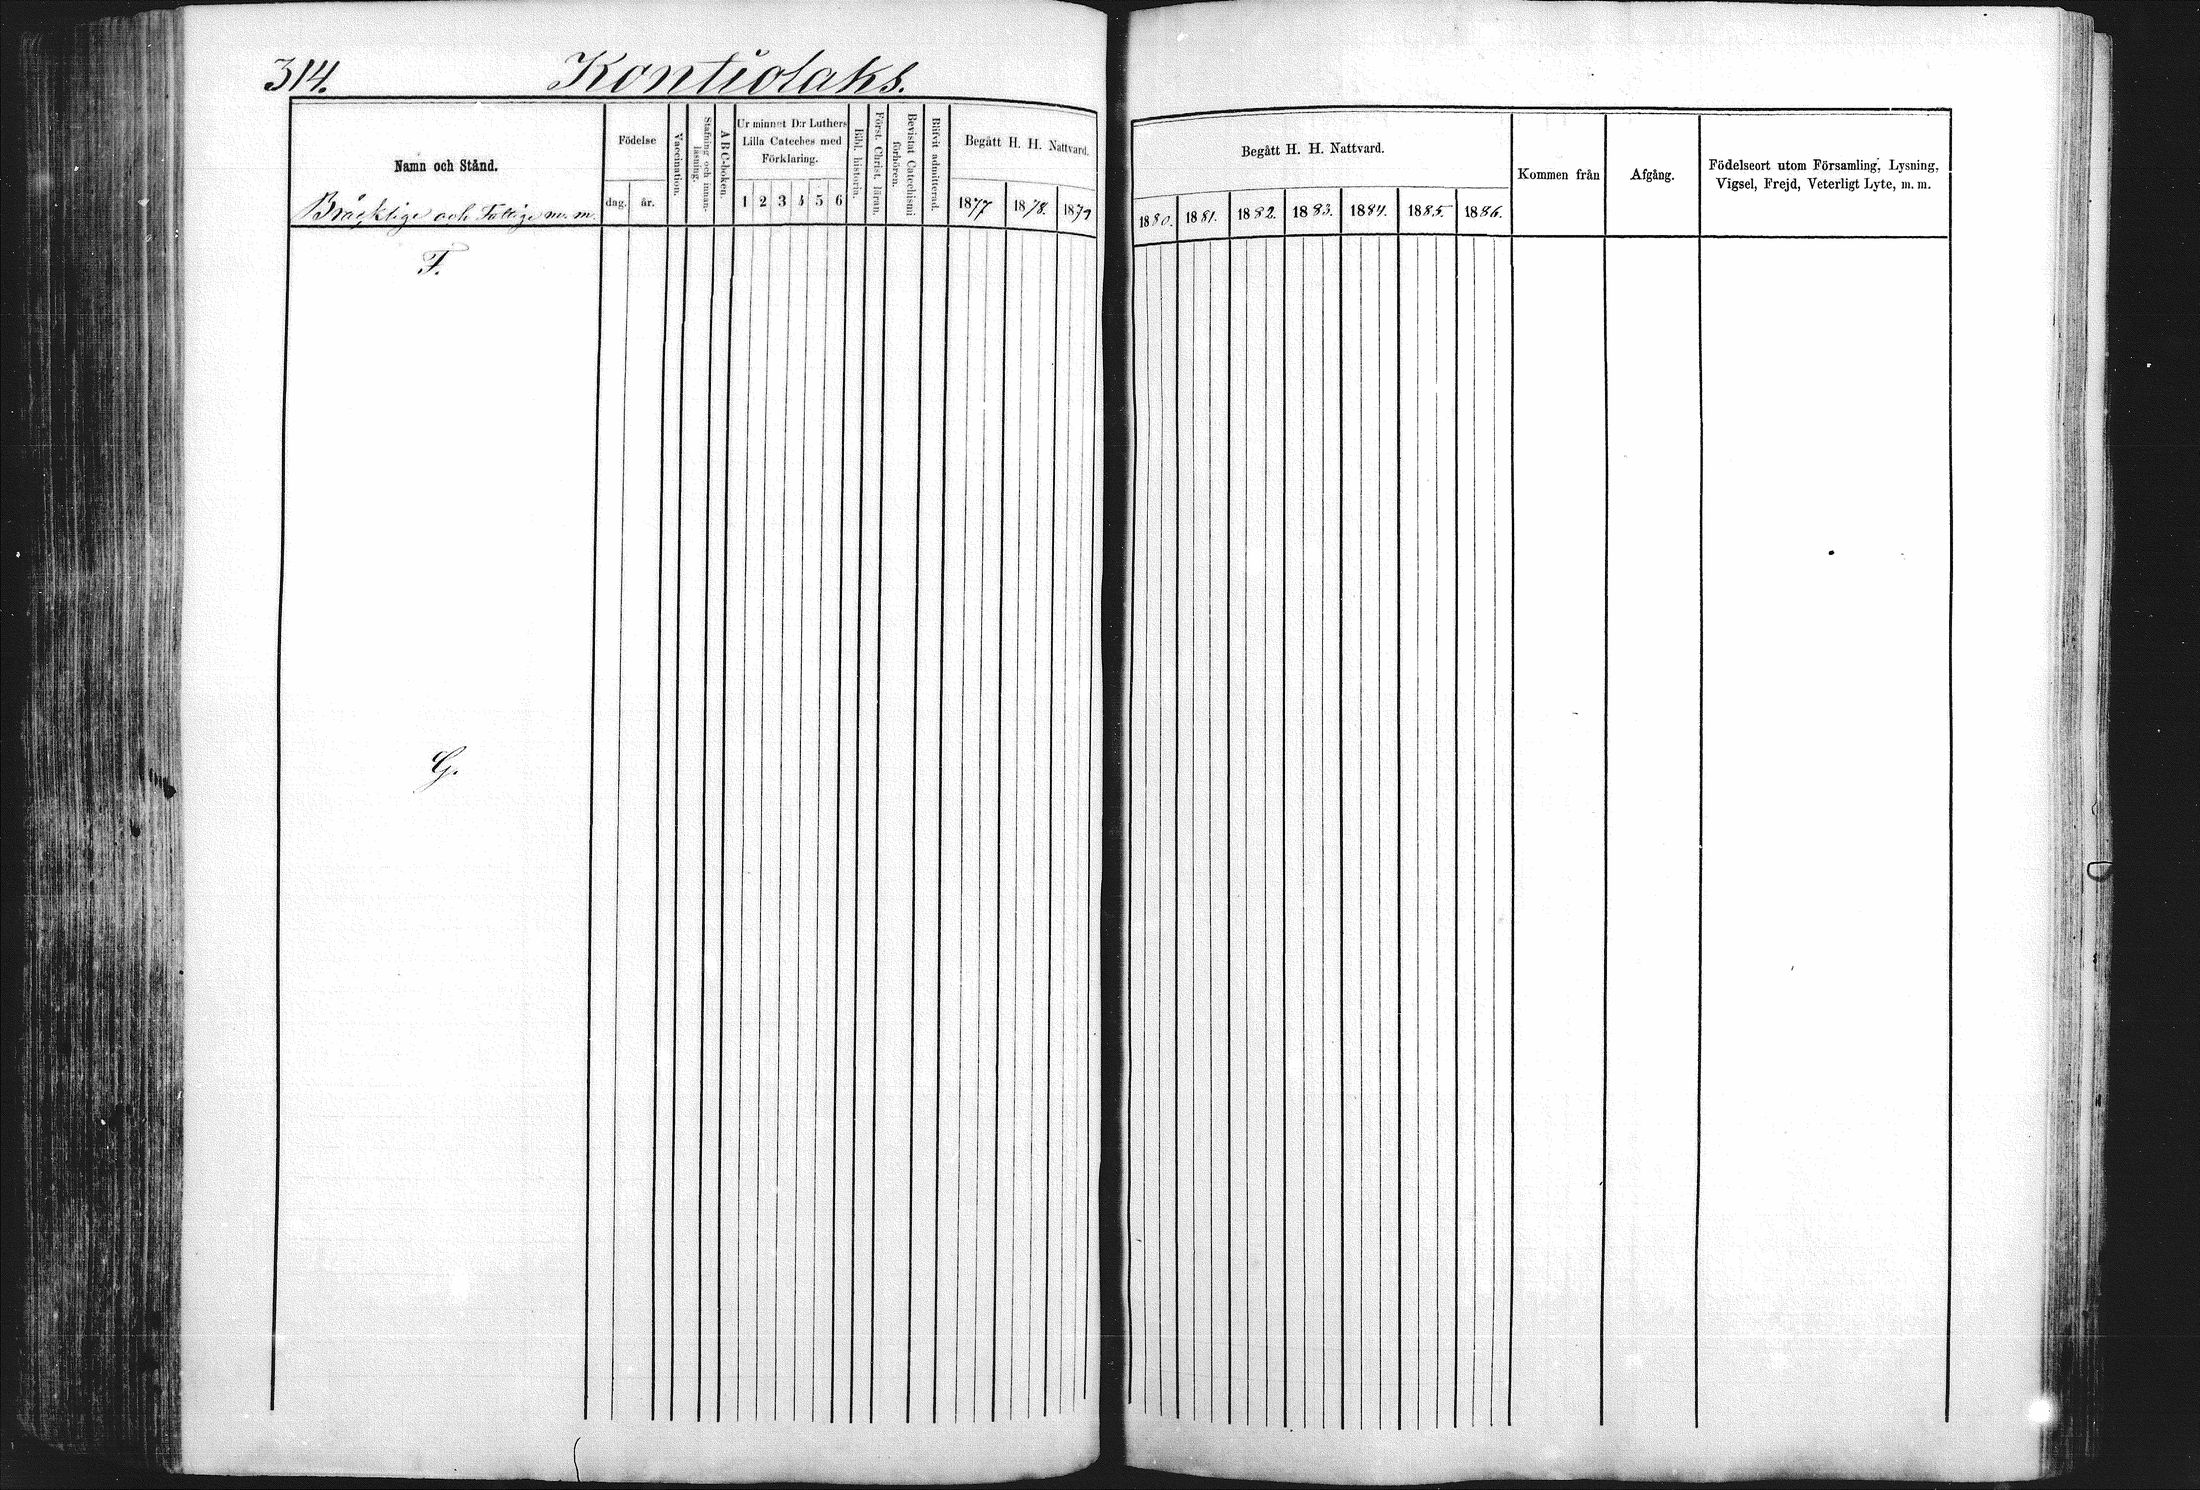 314. Kontiolaks.
Namn och Stånd.
Bräcklige och Fattige m. m.
Födelse
dag. år.
Vaccination.
Stafning och innan-
läsning.
A B C-boken.
Ur minnet D:r Luthers
Lilla Cateches med
Förklaring.
1 2 3 4 5 6
Bibl. historia.
Först. Christ. läran.
Bevistat Catechismi
förhören.
Blifvit admitterad.
Begått H. H. Nattvard.
1877 1878. 1879
Begått H. H. Nattvard.
1880. 1881. 1882. 1883. 1884. 1885. 1886.
Kommen från
Afgång.
Födelseort utom Församling, Lysning,
Vigsel, Frejd, Veterligt Lyte, m. m.
F.
G.